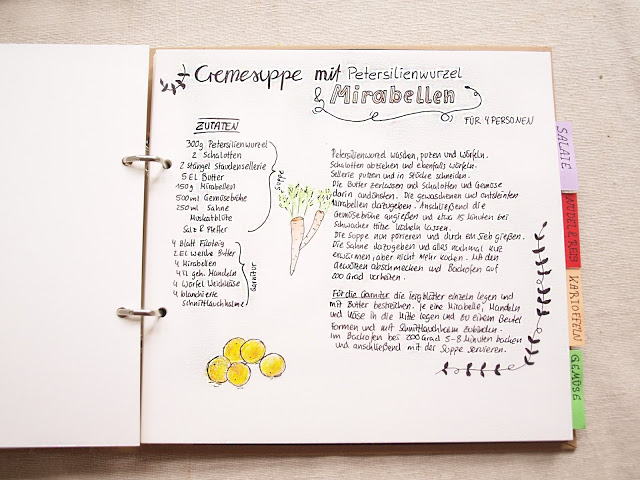 Cremesuppe mit Petersilienwurzel
& Mirabellen
FÜR 4 PERSONEN
ZUTATEN
300g Petersilienwurzel
2 Schalotten
2 Stängel Staudensellerie
5 EL Butter
150g Mirabellen
500ml Gemüsebrühe
250ml Sahne
Muskatblüte
Salz & Pfeffer
Suppe
4 Blatt Filoteig
2 EL weiche Butter
4 Mirabellen
4 TL geh. Mandeln
4 Würfel Weichkäse
4 blanchierte
Schnittlauchhalme
Garnitur
Petersilienwurzel waschen, putzen und würfeln.
Schalotten abziehen und ebenfalls würfeln.
Sellerie putzen und in Stücke schneiden.
Die Butter zerlassen und Schalotten und Gemüse
darin andünsten. Die gewaschenen und entsteinten
Mirabellen dazugeben. Anschließend die
Gemüsebrühe angießen und etwa 15 Minuten bei
schwacher Hitze köcheln lassen.
Die Suppe nun pürieren und durch ein Sieb gießen.
Die Sahne dazugeben und alles nochmal kurz
erwärmen, aber nicht mehr kochen. Mit den
Gewürzen abschmecken und Backofen auf
200 Grad vorheizen.
Für die Garnitur die Teigblätter einzeln legen und
mit Butter bestreichen. Je eine Mirabelle, Mandeln
und Käse in die Mitte legen und zu einem Beutel
formen und mit Schnittlauchhalm zubinden.
Im Backofen bei 200 Grad 5-8 Minuten backen
und anschließend mit der Suppe servieren.
SALATE
NUDEL & REIS
KARTOFFELN
GEMÜSE